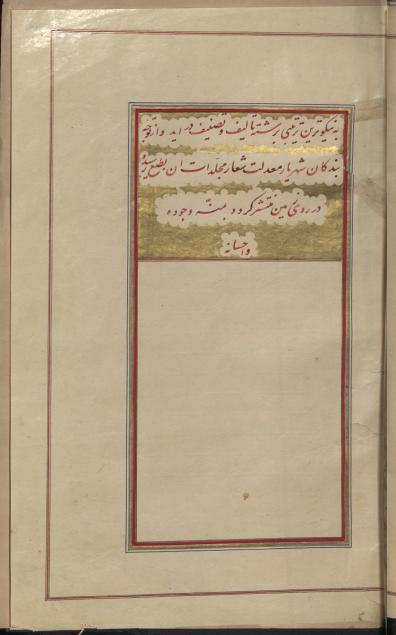 به نیکوترین ترتیبی برشته تالیف و تصنیف در اید و از توجه
بندکان شهریار معدلت شعار مجلدات ان بطبع رسیده
در روی زمین منتشر کردد بمنه وجوده
واحسانه